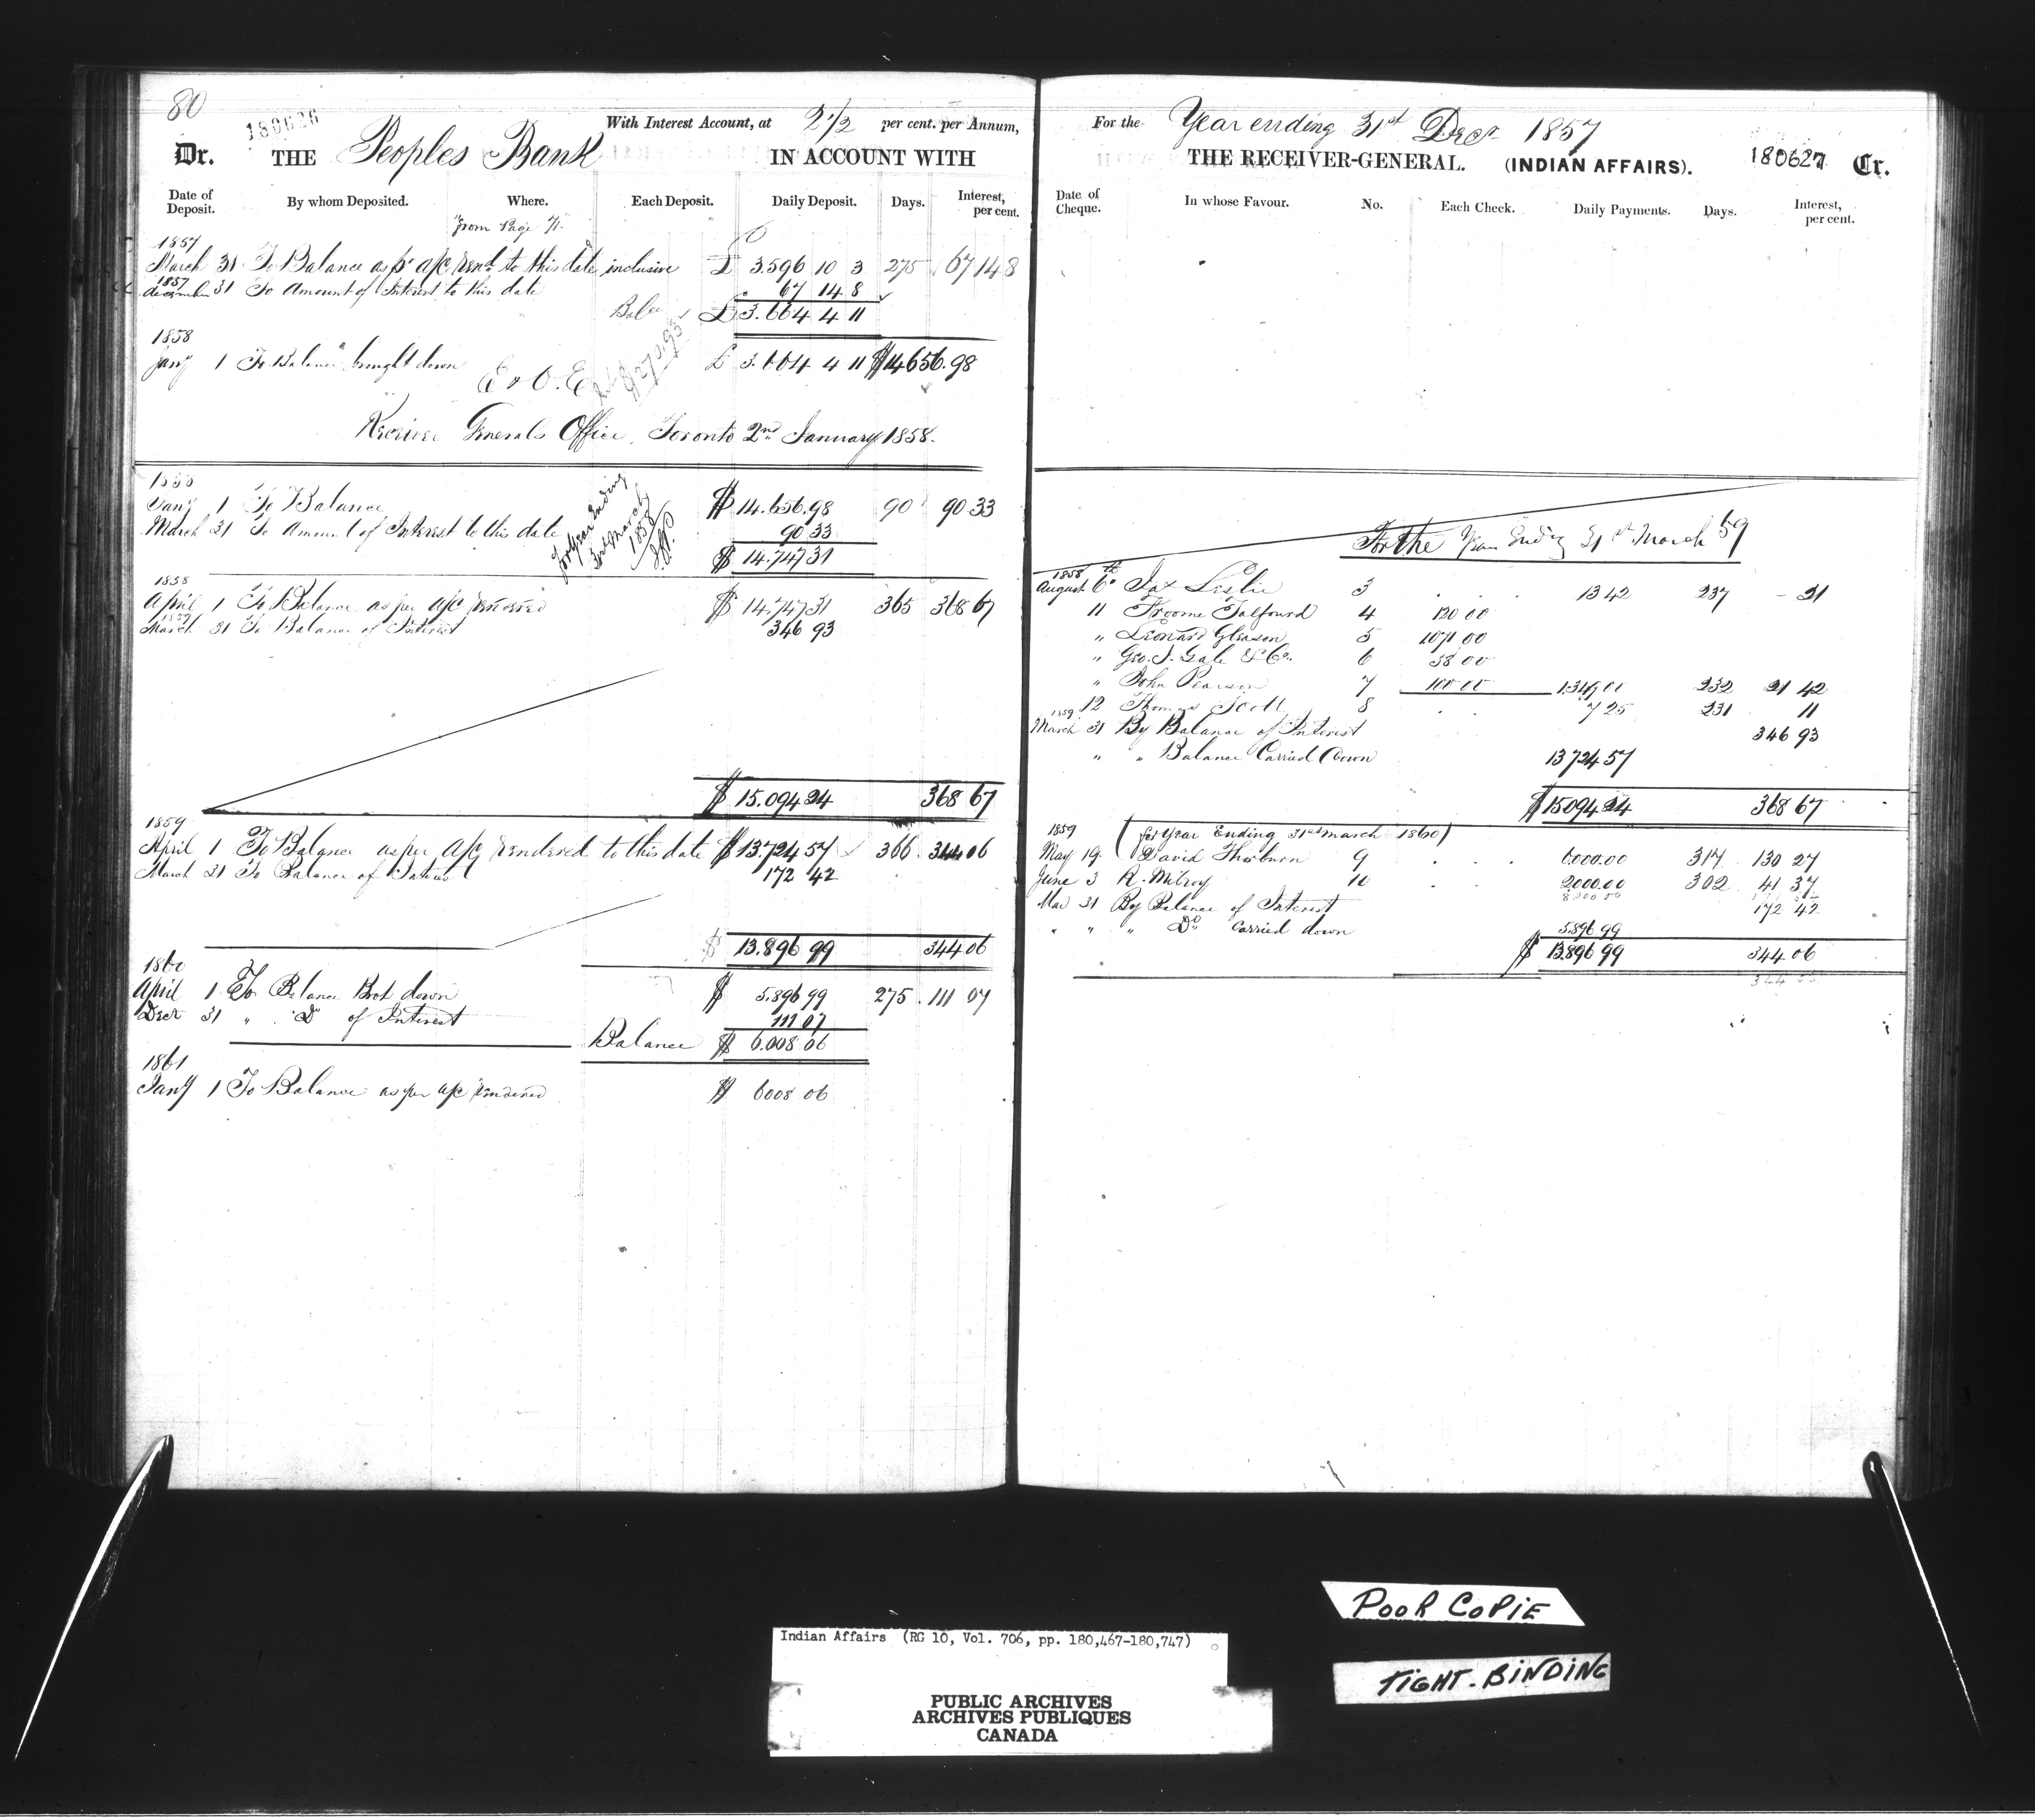 80
180626
With Interest Account, at 2 1/2 per cent. per Annum,
Dr. THE Peoples Bank IN ACCOUNT WITH
Date of Deposit. By whom Deposited. Where. Each Deposit. Daily Deposit. Days. Interest, per cent.
"from Page 71."
1857
March 31 To Balance as pr a/c rend. to this date inclusive £ 3.596 10 3 275 67 14 8
1857
december 31 To Amount of Interest to this date 67 14 8
Balce £ 3.664 4 11
1858
Jany 1 To Balance brought down £ 3.664 4 11 $14656.98
E & O. E
Receiver Generals Office, Toronto 2nd January 1858.
1858
Jany 1 To Balance $ 14.656.98 90 90 33
March 31 To Amount of Interest to this date 90 33
$ 14.747 31
for Year Ending
31st March
1858
1858
April 1 To Balance as per a/c rendered $ 14.747 31 365 368 67
1859
March 31 To Balance of Interest 346 93
$ 15.094 24 368 67
1859
April 1 To Balance as per a/c rendered to this date $ 13.724 57 366 344 06
March 31 To Balance of Interest 172 42
$ 13.896 99 344 06
1860
April 1 To Balance Brot down $ 5.896 99 275 111 07
Decr 31 " " Do of Interest 111 07
Balance $ 6.008 06
1861
Jany 1 To Balance as per a/c rendered $ 6008 06
For the Year ending 31st Decr 1857
THE RECEIVER-GENERAL. (INDIAN AFFAIRS). 180627 Cr.
Date of Cheque. In whose Favour. No. Each Check. Daily Payments. Days. Interest, per cent.
For the Year Ending 31st March 59
1858
August 6th Jas Leslie 3 13 42 237 - 21
11 Froome Talfourd 4 120 00
" Leonard Gleason 5 1071 00
" Geo. J. Gale & Co. 6 58 00
" John Pearson 7 100 00 1.349 00 232 21 42
12 Thomas Scott 8 7 25 231 11
1859
March 31 By Balance of Interest 346 93
" " Balance Carried Down 13724 57
$ 15094 24 368 67
1859 (for Year Ending 31st March 1860)
May 19 David Thorburn 9 6.000.00 317 130 27
June 3 R. Mitroy 10 2.000.00 302 41 37
8000 00
Mar 31 By Balance of Interest 172 42
" " " Do carried down 5.896 99
$ 13.896 99 344 06
POOR COPIE
TIGHT-BINDING
Indian Affairs (RG 10, Vol. 706, pp. 180,467-180,747)
PUBLIC ARCHIVES
ARCHIVES PUBLIQUES
CANADA